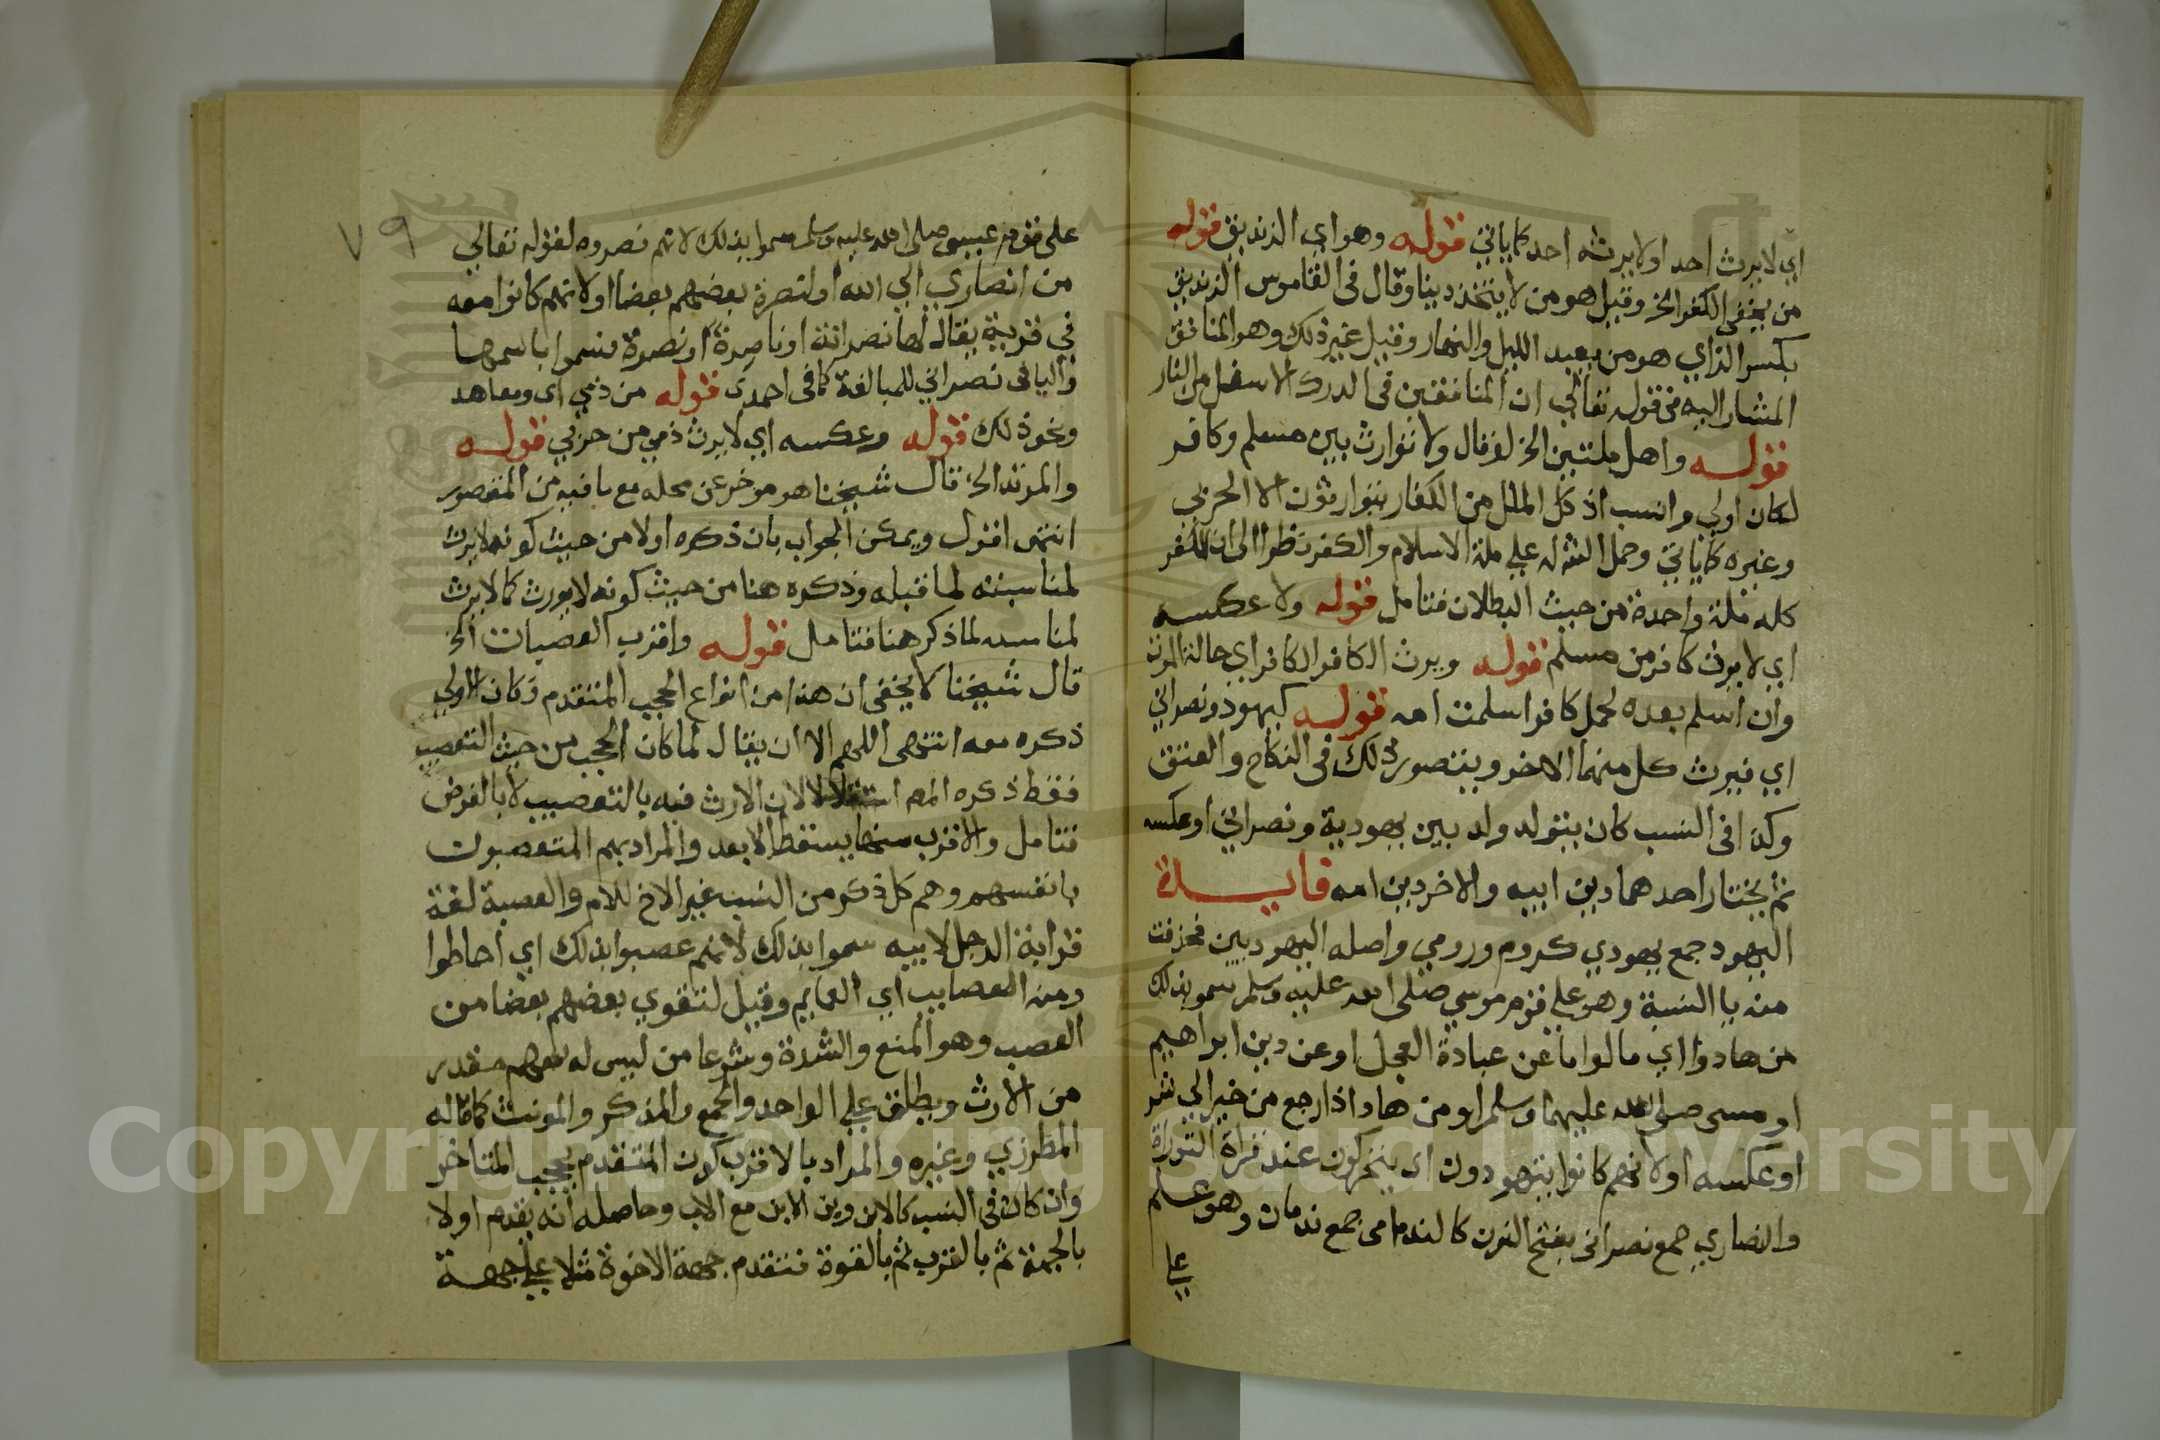 اي لا يرث احد اولا يرثه احد كما ياتي قوله وهو اي الزنديق قوله
من يخفي الكفر الخ وقيل هو من لا يتخذ دينا وقال في القاموس الزنديق
بكسر الزاي هو من يعبد الليل والنهار وقيل غير ذلك وهو المنافق
المشار اليه في قوله تعالي ان المنافقين في الدرك الاسفل من النار
قوله واهل ملتين الخ لو قال ولا توارث بين مسلم وكافر
لكان اولي وانسب اذ كل الملل من الكفار يتوارثون الا الحربي
وغيره كما ياتي وحمل الشر له علي ملة الاسلام والكفر نظرا الي ان الكفر
كله ملة واحدة من حيث البطلان فتامل قوله ولا عكسه
اي لا يرث كافر من مسلم قوله ويرث الكافر الكافر اي حالة الموت
وان اسلم بعده لحمل كافر اسلمت امه قوله كيهودي ونصراني
اي فيرث كل منهما الاخر ويتصور ذلك في النكاح والعتق
وكذا في النسب كان يتولد ولد بين يهودية ونصراني او عكسه
ثم يختار احدهما دين ابيه والاخر دين امه فايدة
اليهود جمع يهودي كروم ورومي واصله اليهوديين فحذفت
منه يا النسبة وهو علي قوم موسي صلي الله عليه وسلم سموا بذلك
من هادوا اي مالوا ما عن عبادة العجل او عن دين ابراهيم
او موسى صلي الله عليهما وسلم او من هاد اذا رجع من خير الي شر
او عكسه اولا نهم كانوا يتهودون اي يتحركون عند قراة التوراة
والنصاري جمع نصراني بفتح النون كالندمامي جمع ندمان وهو علم
علي
٧٩
علي قوم عيسى صلي الله عليه وسلم سموا بذلك لانهم نصروه لقوله تعالي
من انصاري الي الله او لنصرة بعضهم بعضا اولا نهم كانوا معه
في قرية يقال لها نصرانة او ناصرة او نصرة فسموا باسمها
واليا في نصراني للمبالغة كما في احمدي قوله من ذمي اي ومعاهد
ونحو ذلك قوله وعكسه اي لا يرث ذمي من حربي قوله
والمرتد الخ قال شيخنا هو موخر عن محله مع ما فيه من القصور
انتهى اقول ويمكن الجواب بان ذكره اولا من حيث كونه لا يرث
لمناسبته لما قبله وذكره هنا من حيث كونه لا يورث كما لا يرث
لمناسبه لما ذكر هنا فتامل قوله واقرب العصبات الخ
قال شيخنا لا يخفى ان هذا من انواع الحجب المتقدم وكان الاولي
ذكره معه انتهى اللهم الا ان يقال لما كان الحجب من حيث التعصيب
فقط ذكره المص استقلالا لان الارث فيه بالتعصيب لا بالفرض
فتامل والاقرب منها يسقط الابعد والمراد بهم المتعصبون
بانفسهم وهم كل ذكر من النسب غير الاخ للام والعصبة لغة
قرابة الرجل لابيه سموا بذلك لانهم عصبوا بذلك اي احاطوا
ومنه العصايب اي العمايم وقيل لتقوي بعضهم بعضا من
العصب وهو المنع والشدة وشرعا من ليس له سهم مقدر
من الارث ويطلق علي الواحد والجمع والمذكر والمونث كما قاله
المطرزي وغيره والمراد بالاقرب كون المتقدم يحجب المتاخر
وان كان في النسب كالابن وبن الابن مع الاب وحاصله انه يقدم اولا
بالجهة ثم بالقرب ثم بالقوة فتقدم جهة الاخوة مثلا علي جهة
Copyright © King Saud University